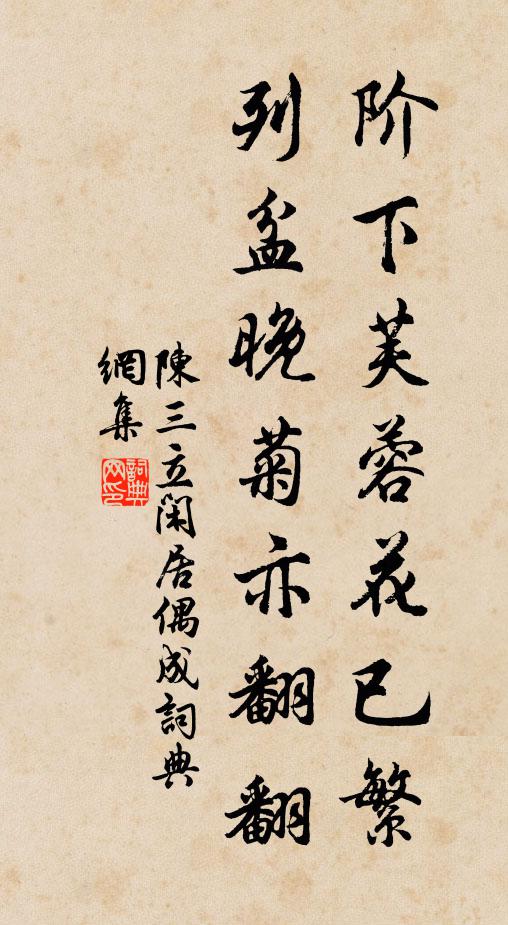 阶下芙蓉花已繁
列盆晚菊亦翻翻
陳三立閑居偶成詞典
網集
詞典
网印